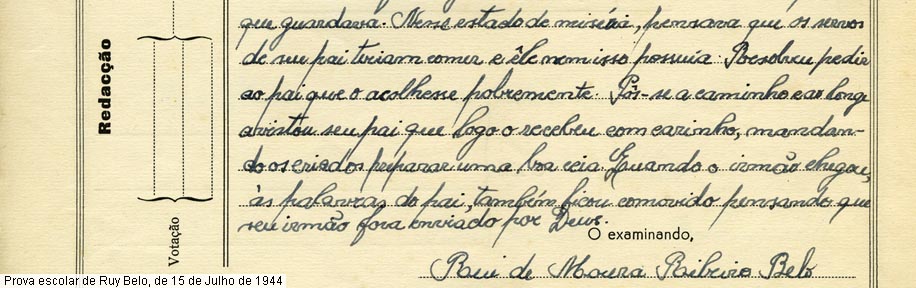 que guardava. Nesse estado de miséria, pensava que os servos
de seu pai teriam comer e êle nem isso possuia. Resolveu pedir
ao pai que o acolhesse pobremente. Pôs-se a caminho e ao longe
avistou seu pai que logo o recebeu com carinho, mandan-
do os criados preparar uma boa ceia. Quando o irmão chegou,
às palavras do pai, também ficou comovido pensando que
seu irmão fora enviado por Deus.
O examinando,
Rui de Moura Ribeiro Belo
Redacção
Votação
Prova escolar de Ruy Belo, de 15 de Julho de 1944